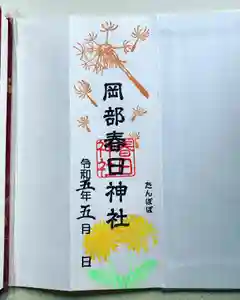 岡部春日神社
春日
神社
たんぽぽ
令和五年五月 日